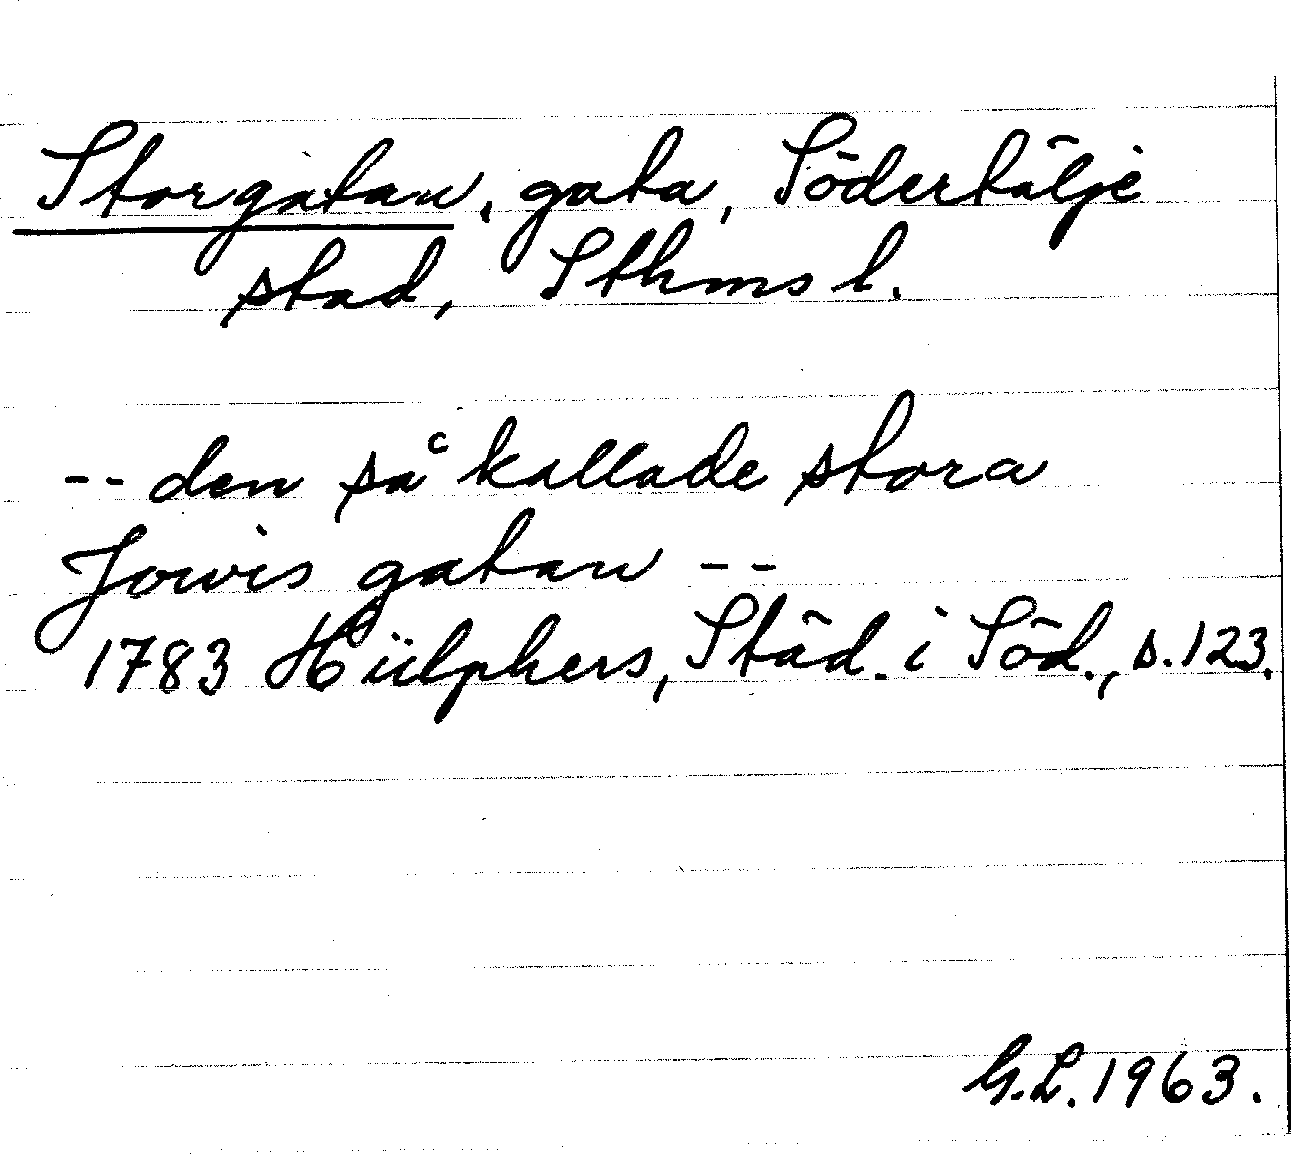 Storgatan, gata, Södertälje
stad, Sthms l.
-- den så kallade stora
Jowis gatan --
1783 Hülphers, Städ. i Söd., s. 123.
G.L. 1963.